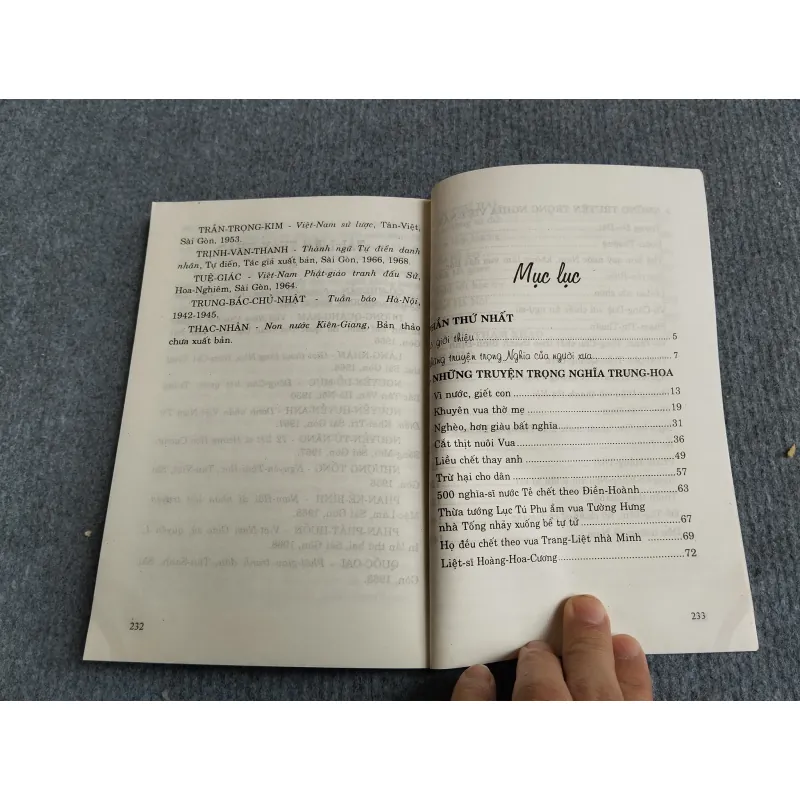 TRẦN-TRỌNG-KIM - Việt-Nam sử lược, Tân-Việt,
Sài Gòn, 1953.
TRỊNH-VÂN-THANH - Thành ngữ Tự điển danh
nhân, Tự điển, Tác giả xuất bản, Sài Gòn, 1966, 1968.
TUỆ-GIÁC - Việt-Nam Phật-giáo tranh đấu Sử,
Hoa-Nghiêm, Sài Gòn, 1964.
TRUNG-BẮC-CHỦ-NHẬT - Tuần báo Hà-Nội,
1942-1945.
THẠC-NHÂN - Non nước Kiên-Giang, Bản thảo
chưa xuất bản.
232
Mục lục
PHẦN THỨ NHẤT
giới thiệu 5
truyện trọng Nghĩa của người xưa 7
NHỮNG TRUYỆN TRỌNG NGHĨA TRUNG-HOA
Vì nước, giết con 13
Khuyên vua thờ mẹ 19
Nghèo, hơn giàu bất nghĩa 31
Cắt thịt nuôi Vua 36
Liều chết thay anh 49
Trừ hại cho dân 57
500 nghĩa-sĩ nước Tề chết theo Điền-Hoành 63
Thừa tướng Lục Tú Phu ẵm vua Tường Hưng
nhà Tống nhảy xuống bể tự tử 67
Họ đều chết theo vua Trang-Liệt nhà Minh 69
Liệt-sĩ Hoàng-Hoa-Cương 72
233